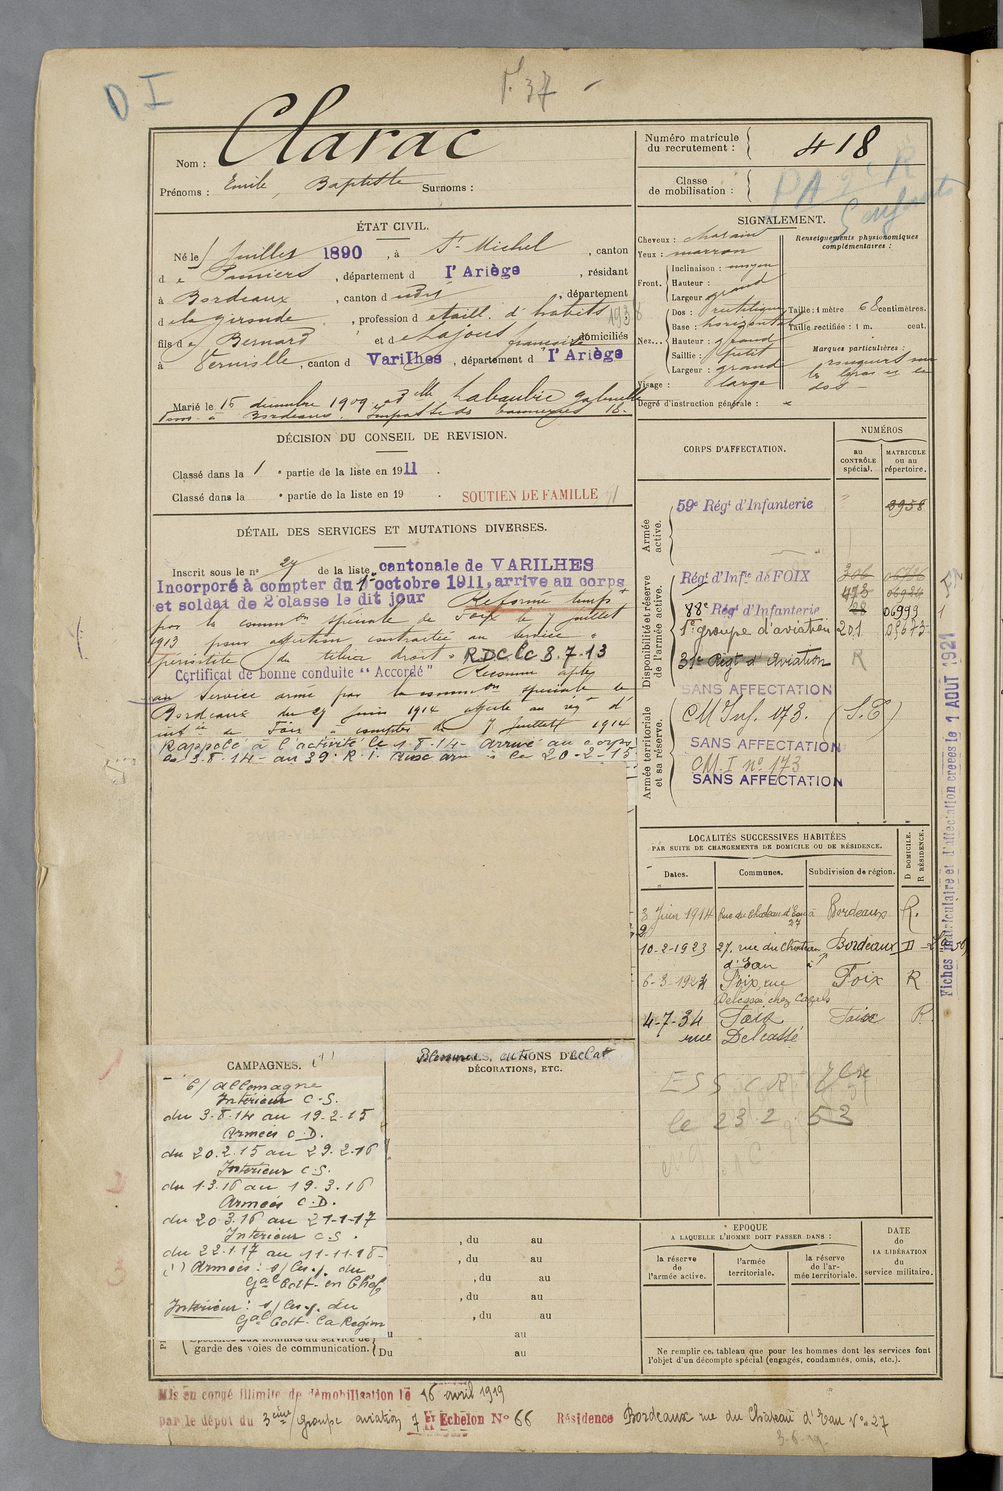 D I
P. 37 -
Nom : Clarac
Prénoms : Emile, Baptiste Surnoms :
Numéro matricule
du recrutement : 418
Classe
de mobilisation :
ÉTAT CIVIL.
Né le 1 Juillet 1890, à St Michel, canton
de Pamiers, département d l'Ariège, résidant
à Bordeaux, canton d udit, département
de la Gironde, profession d etaill. d'habits
fils de Bernard et de Lajous française domiciliés
à Vernielle, canton d Varilhes, département d l'Ariège
Marié le 15 décembre 1909 à Dlle Labaubie Gabrielle
Dom. à Bordeaux. Impasse des 16.
DÉCISION DU CONSEIL DE REVISION.
Classé dans la 1e partie de la liste en 1911.
Classé dans la e partie de la liste en 19 .
SOUTIEN DE FAMILLE
DÉTAIL DES SERVICES ET MUTATIONS DIVERSES.
Inscrit sous le no 27 de la liste cantonale de VARILHES
Incorporé à compter du 1er octobre 1911, arrive au corps
et soldat de 2e classe le dit jour Réformé tempre
par la common spéciale de Foix le 7 juillet
1913 pour affection contractée au service "
périostite du tibia droit" RDC le 8.7.13
Certificat de bonne conduite "Accordé" Reconnu apte
au Service armé par la common spéciale de
Bordeaux du 27 Juin 1914 affecté au régt d'
infie de Foix à compter du 7 Juillet 1914
Rappelé à l'activité le 1.8.14- arrivé au corps
le 3.8.14- au 39e R.i. aux armées le 20-2-15
CAMPAGNES. (1)
C/ Allemagne
Intérieur C-S.
du 3-8-14 au 19-2-15
Armées C.D.
du 20.2.15 au 29.2.16
Intérieur C-S.
du 1.3.16 au 19.3.16
Armées C.D.
du 20.3.16 au 21-1-17
Intérieur C.S.
du 22.1.17 au 11-11-18-
(1) Armées : s/ les o. du
Gal Cdt en Chef
Intérieur : s/ les o. du
Gal Cdt la Région
BLESSURES, ACTIONS D'ÉCLAT
DÉCORATIONS, ETC.
, du au
, du au
, du au
, du au
, du au
Spéciales aux hommes du service de
garde des voies de communication.
Du au
Du au
SIGNALEMENT.
Cheveux : chatain
Yeux : marron
Front.
Inclinaison : moyen
Hauteur : grand
Largeur grand
Nez...
Dos : rectiligne
Base : horizontal
Hauteur : grand
Saillie : petit
Largeur : grand
Visage : large
Degré d'instruction générale :
Renseignements physionomiques
complémentaires :
Taille : 1 mètre 68 centimètres.
Taille rectifiée : 1 m. cent.
Marques particulières :
CORPS D'AFFECTATION.
NUMÉROS
au
CONTRÔLE
spécial.
MATRICULE
ou au
répertoire.
Armée
active.
59e Régt d'Infanterie 3958
Disponibilité et réserve
de l'armée active.
Régt d'Infie de FOIX 306
88e Régt d'Infanterie 28 06993
1er groupe d'aviation 201
31e Régt d'Aviation R
SANS AFFECTATION
Armée territoriale
et sa réserve.
CM Inf. 173. (S.E)
SANS AFFECTATION
C.M.I no 173
SANS AFFECTATION
LOCALITÉS SUCCESSIVES HABITÉES
PAR SUITE DE CHANGEMENTS DE DOMICILE OU DE RÉSIDENCE.
Dates. Communes. Subdivision de région. D DOMICILE. R RÉSIDENCE.
3 Juin 1914 Rue du Château d'Eau 27 Bordeaux R.
10-2-1923 27, rue du Château d'Eau Bordeaux D
6-3-1924 Foix, rue Delcassé, chez Cazals Foix R
4-7-34 Foix rue Delcassé Foix R
le 23 2 53
EPOQUE
A LAQUELLE L'HOMME DOIT PASSER DANS :
la réserve
de
l'armée active.
l'armée
territoriale.
la réserve
de l'ar-
mée territoriale.
DATE
de
LA LIBÉRATION
du
service militaire.
Ne remplir ce tableau que pour les hommes dont les services font
l'objet d'un décompte spécial (engagés, condamnés, omis, etc.).
Fiches matriculaire et d'affectation créées le 1 AOUT 1921
1
2
3
Mis en congé illimité de démobilisation le 16 avril 1919
par le dépôt du 3ème groupe aviation 7e Echelon No 66 Résidence Bordeaux rue du Château d'Eau No 27
3-6-19-